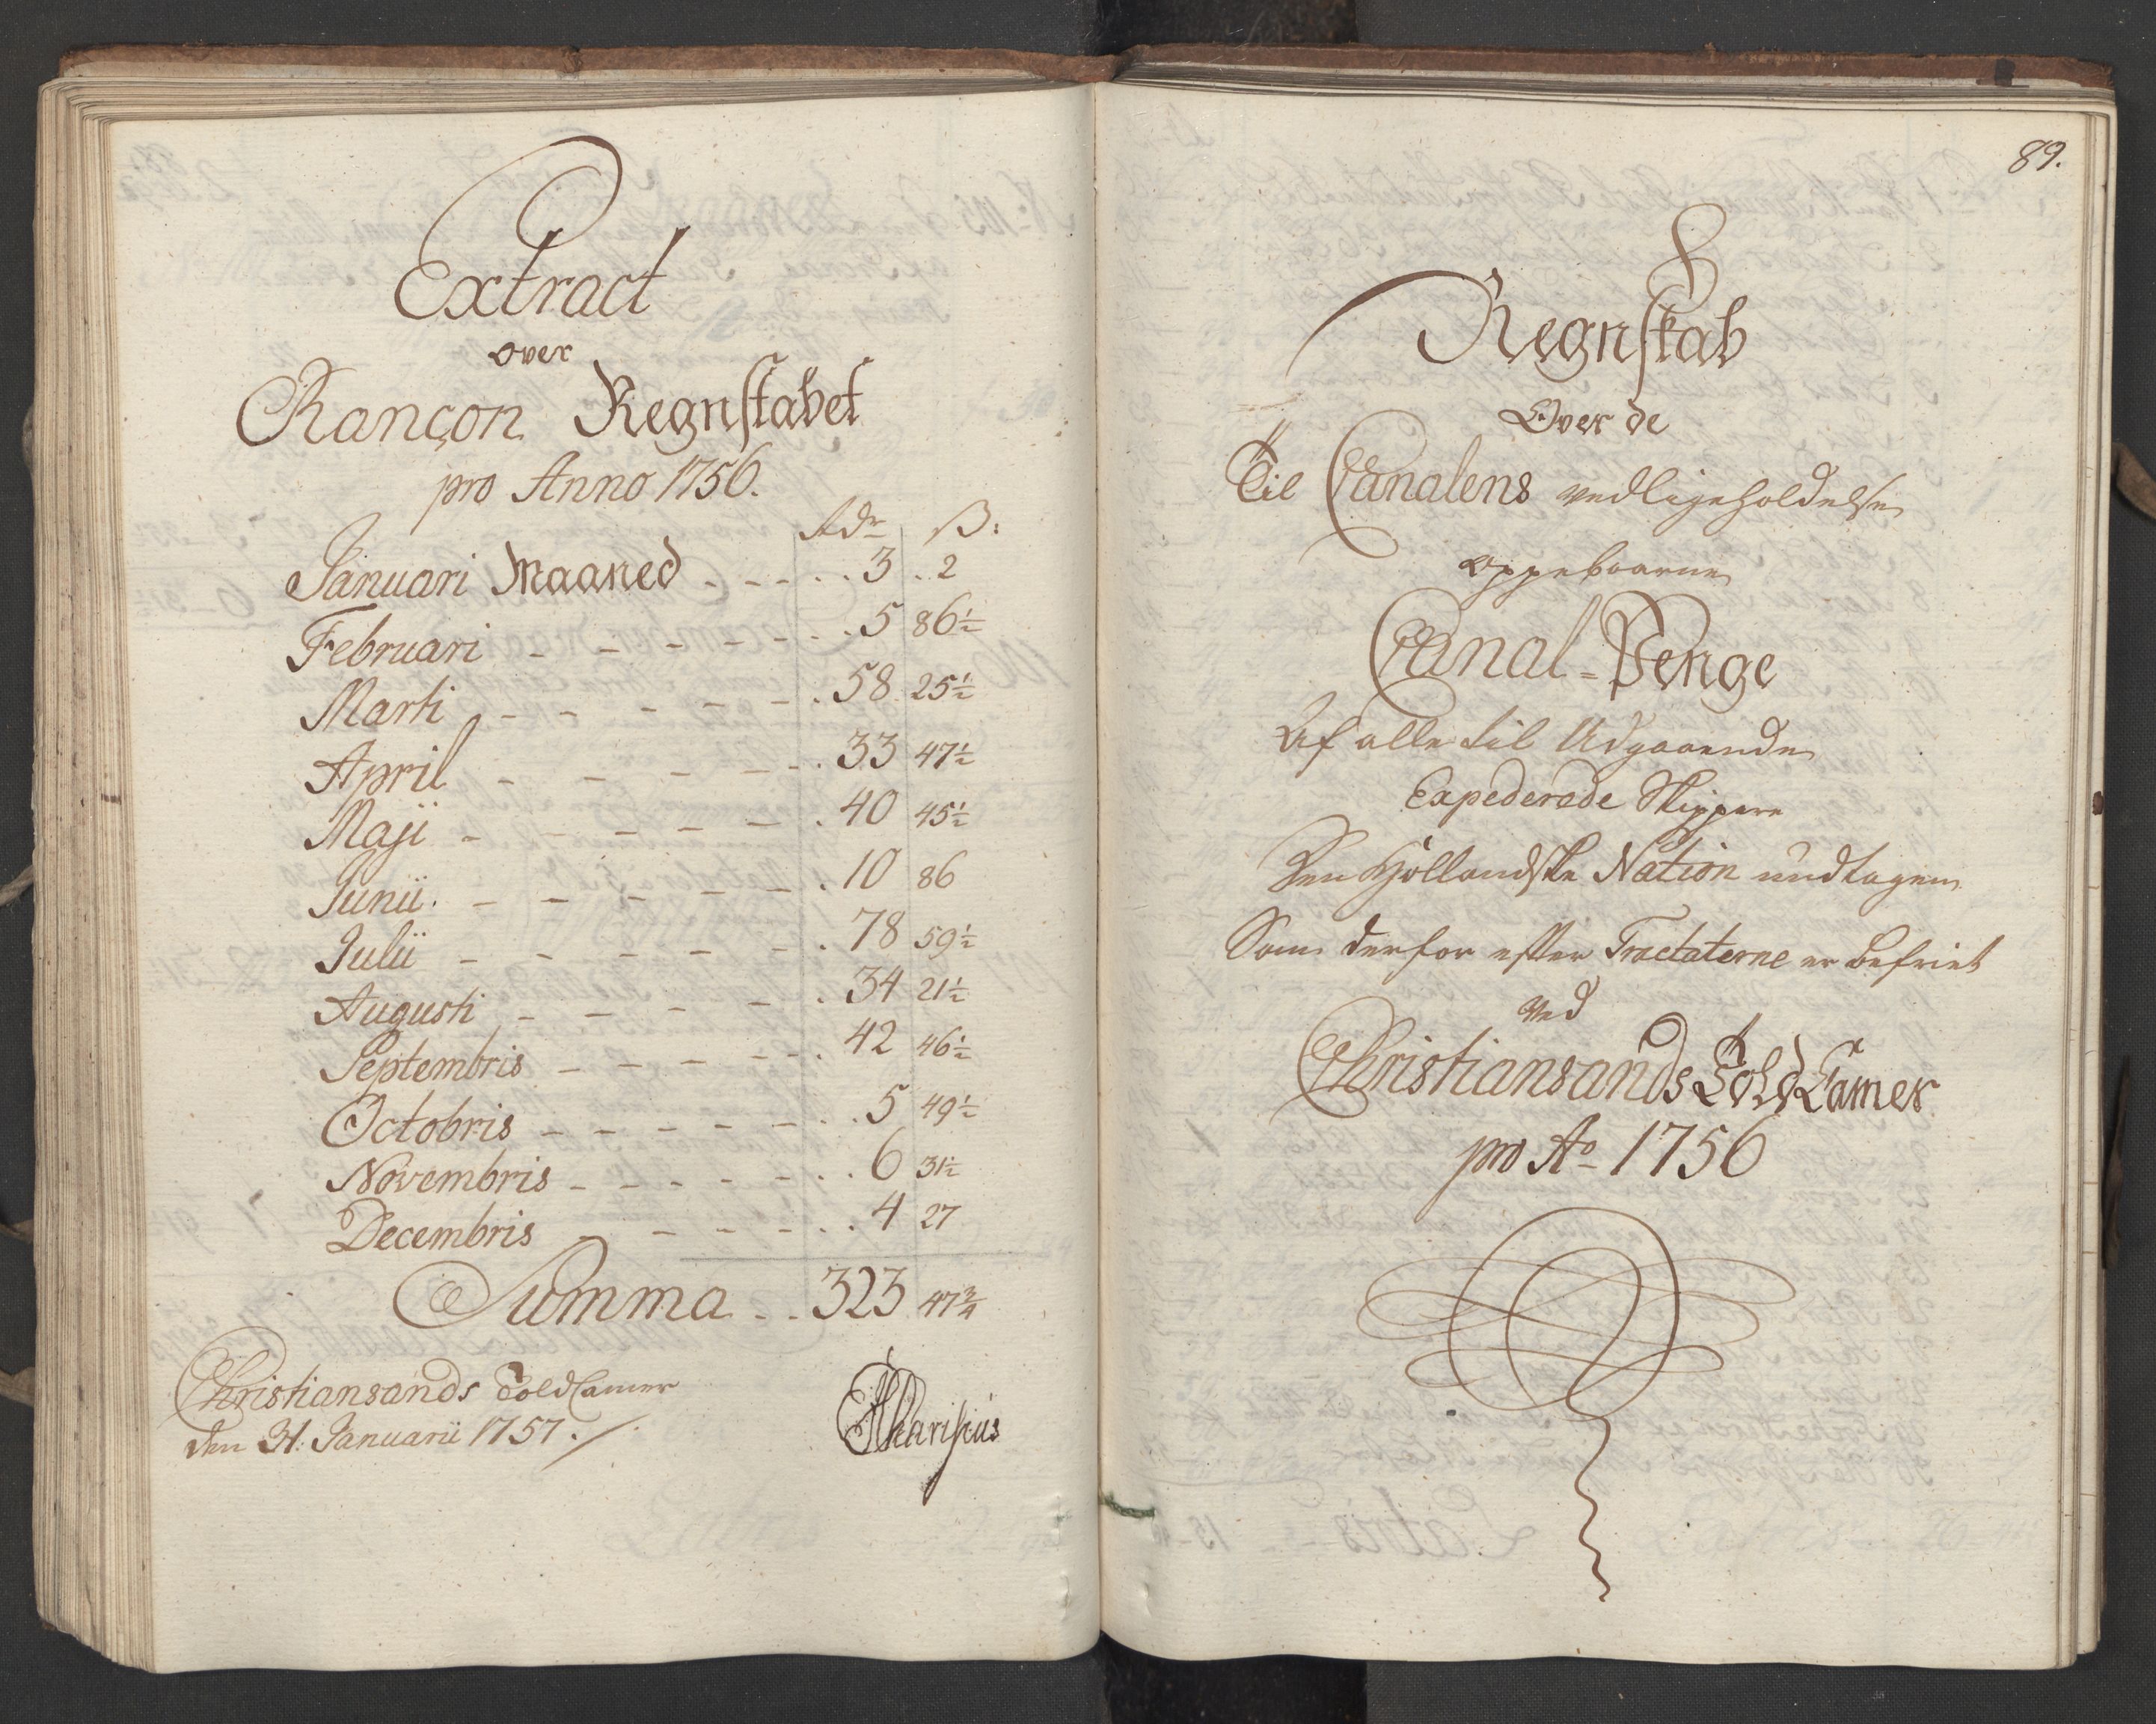 Extract
over
Rançon Regnskabet
pro Anno 1756.
Rdr ß:
Januari Maaned - - - . . 3 . . 2
Februari - - - - - . . 5 86½
Marti - - - - - . 58. 25½
April - - - - - . 33 47½
Maji - - - - - . 40 45½
Junii. - - - - - . 10 86
Julii - - - - - . 78 59½
Augusti - - - - . 34 21½
Septembris - - - - - . 42 46½
Octobris - - - - - - . . 5 49½
Novembris - - - - - . . 6 31½
Decembris - - - - . . 4 27
Summa - - 323 47¾
Christiansands Told Camer
den 31. Januarii 1757.

89.
Regnskab
Over de
Til Canalens vedligeholdelse
oppebaarne
Canal-Penge
Af alle til Udgaaende
Expederede Skippere
Den Hollandske Nation undtagen
Som derfor efter Tractaterne er befriet
ved
Christiansands Told Camer
pro Ao 1756